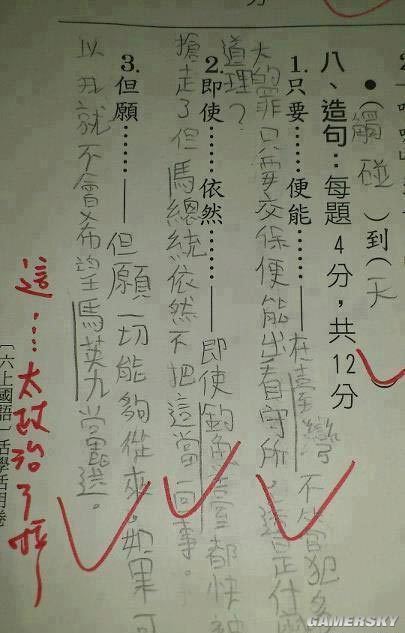 ●（觸碰）到（天
八、造句：每題4分，共12分
1.只要……便能……——在臺灣不管犯多
大的罪只要交保便能出看守所，這是什麼
道理？
2.即使……依然……——即使釣魚臺都快被
搶走了但馬總統依然不把這當一回事。
3.但願……——但願一切能夠從來，如果可
以就不會希望馬英九當選。
這…太政治了吧
〔六上國語 活學活用卷
GAMERSKY